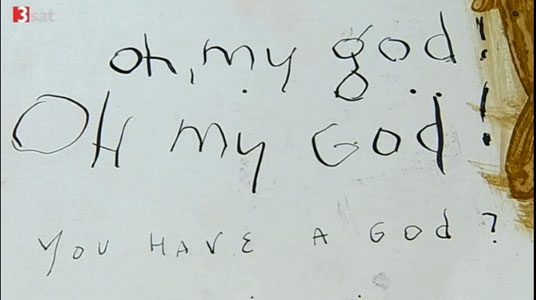 3sat
oh, my god!
OH my God!
YOU HAVE A GOd?